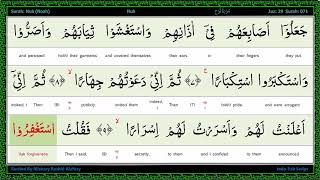 Surah: Nuh (Noah) Nuh سورة نوح Juz: 29 Surah: 071
جَعَلُوٓا اَصَابِعَهُمْ فِىٓ اٰذَانِهِمْ وَاسْتَغْشَوْا ثِيَابَهُمْ وَاَصَرُّوْا
and persisted (with) their garments and covered themselves their ears in their fingers they put
وَاسْتَكْبَرُوا اسْتِكْبَارًا ۚ ﴿٧﴾ ثُمَّ اِنِّىْ دَعَوْتُهُمْ جِهَارًا ۙ ﴿٨﴾ ثُمَّ اِنِّىْٓ
indeed, I Then (8) publicly. invited them indeed, I Then (7) (with) pride. and were arrogant
اَعْلَنْتُ لَهُمْ وَاَسْرَرْتُ لَهُمْ اِسْرَارًا ۙ ﴿٩﴾ فَقُلْتُ اسْتَغْفِرُوْا
"Ask forgiveness Then I said, (9) secretly, to them and I confided to them announced
Recited By Mishary Rashid Alafasy Indo Pak Script